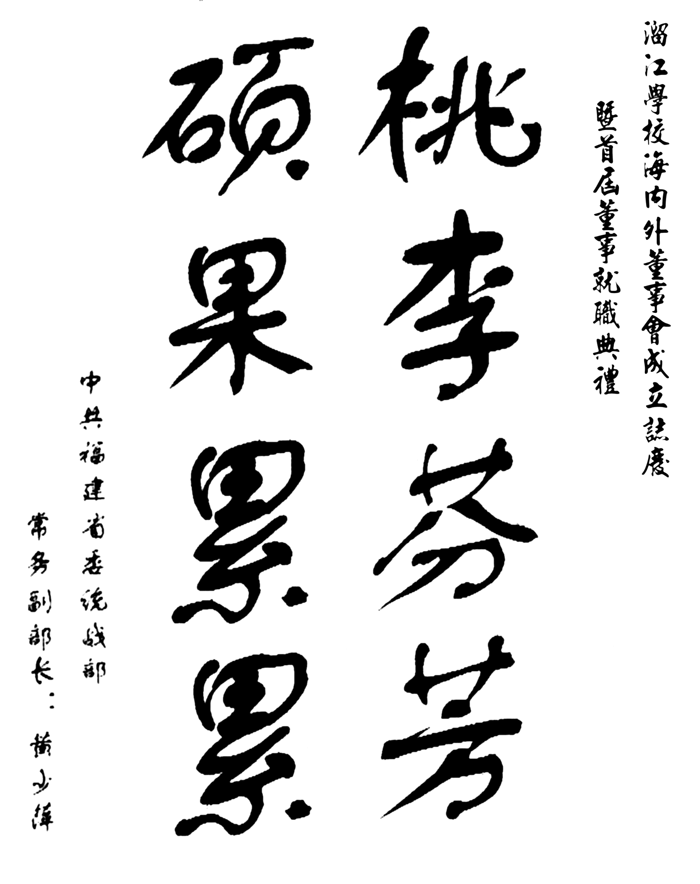 溜江學校海内外董事會成立誌慶
暨首屆董事就職典禮
桃李芬芳
硕果累累
中共福建省委统战部
常务副部长：